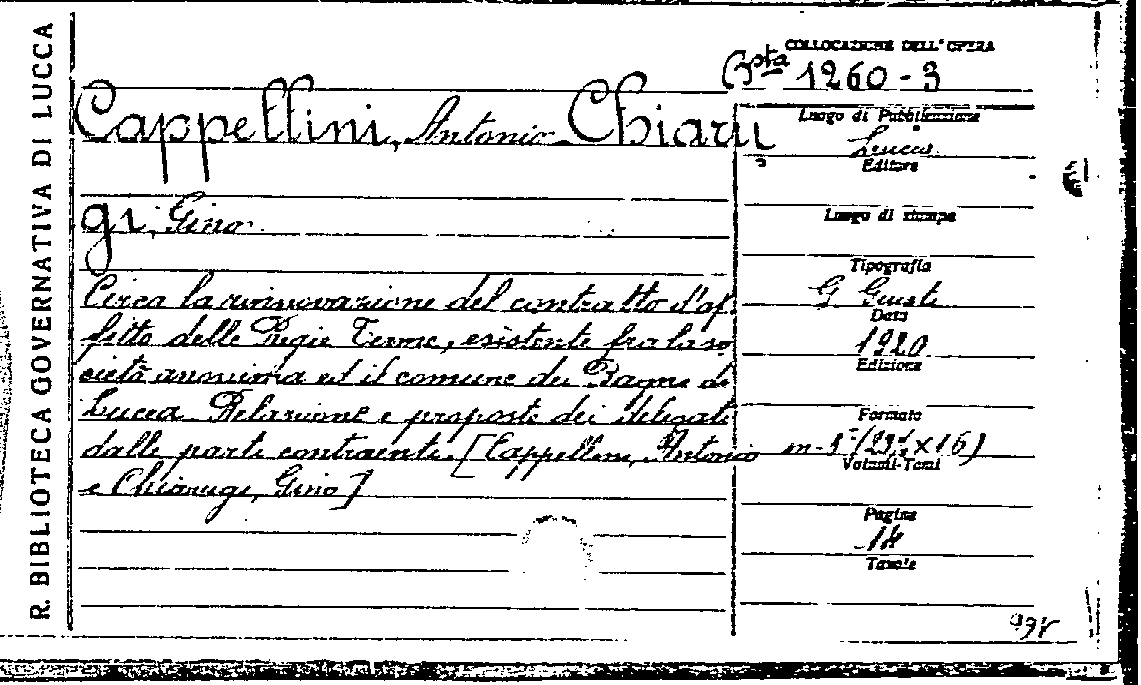 R. BIBLIOTECA GOVERNATIVA DI LUCCA
COLLOCAZIONE DELL'OPERA
Bsta 1260-3
Cappellini, Antonio Chiaru
gi, Gino
Circa la rinnovazione del contratto d'af-
fitto delle Regie Terme, esistente fra la so
cietà anonima ed il comune dei Bagni di
Lucca. Relazione e proposte dei delegati
dalle parti contraenti. [Cappellini, Antonio
e Chiarugi, Gino]
Luogo di Pubblicazione
Lucca
Editore
Luogo di stampa
Tipografia
G Giusti
Data
1920
Edizione
Formato
Volumi-Tomi
Pagine
14
Tavole